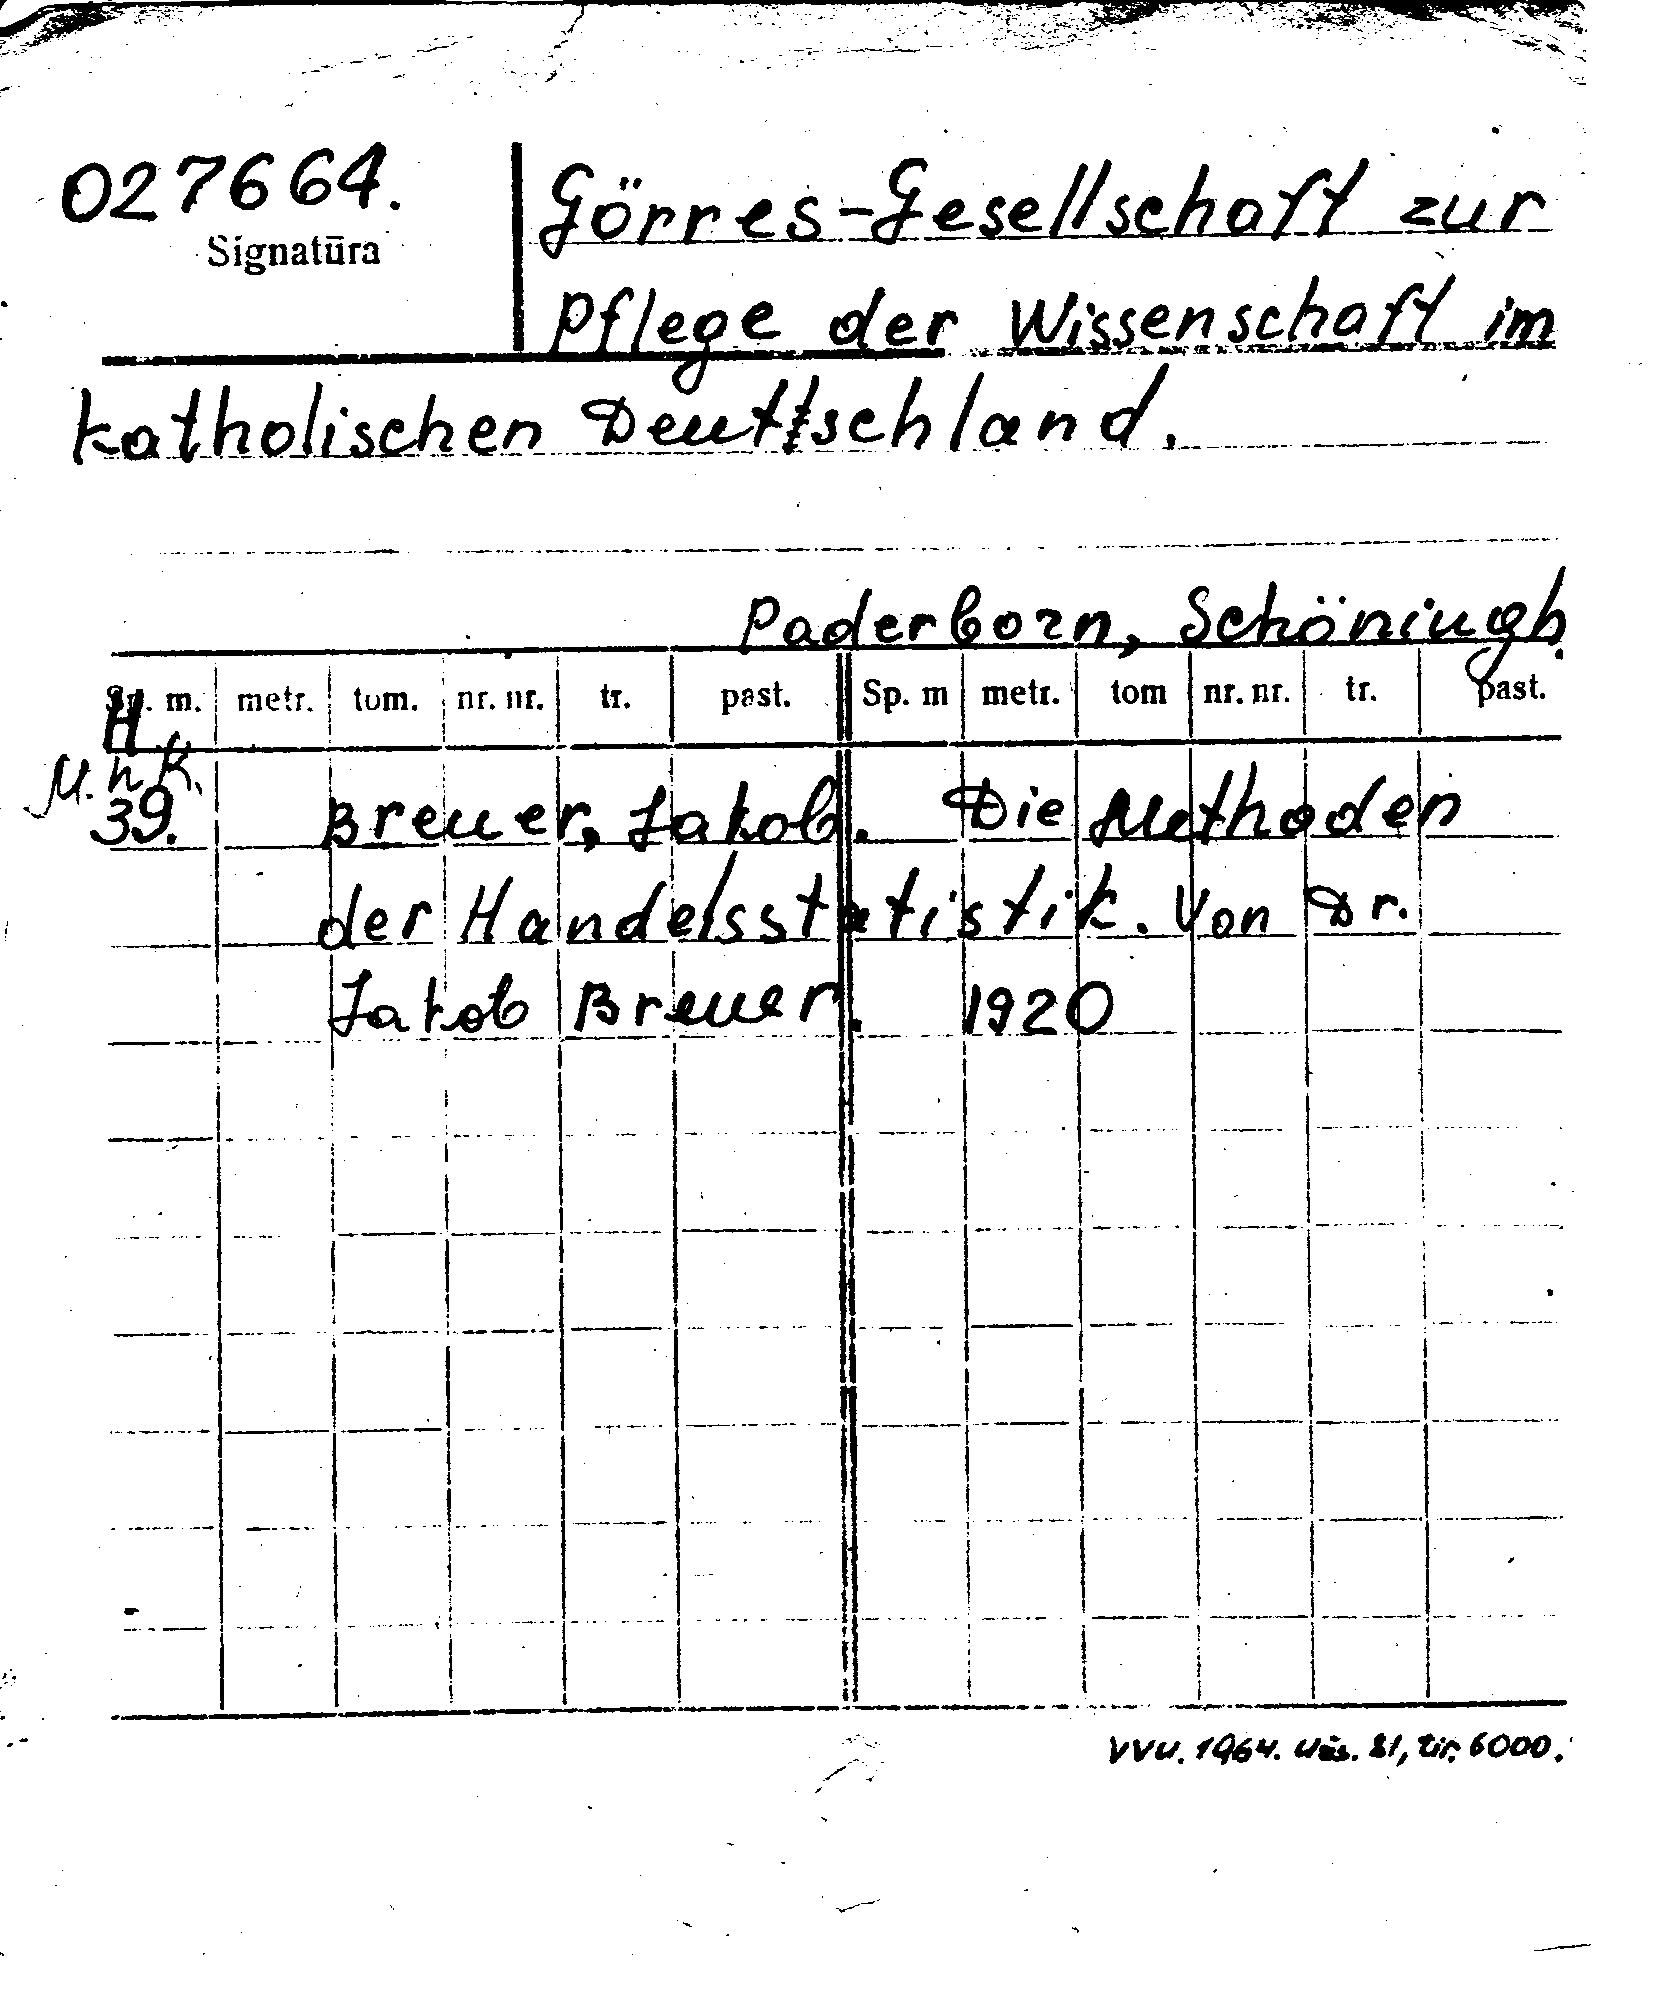 027664.
Signatūra
Görres-Gesellschaft zur
Pflege der Wissenschaft im
katholischen Deutschland.
Paderborn, Schöningh.
Sp. m. metr. tom. nr. nr. tr. past. Sp. m metr. tom nr. nr. tr. past.
H
39. Breuer, Jakob. Die Methoden
der Handelsstatistik. Von Dr.
Jakob Breuer. 1920
VVU. 1964. Užs. 81, tir. 6000.